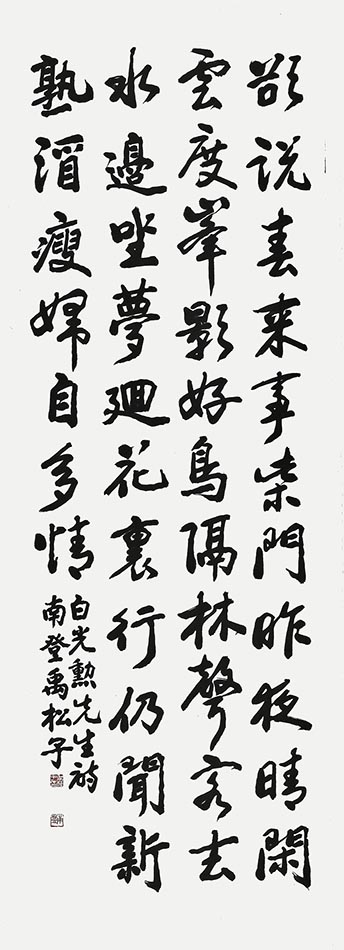 欲説春来事柴門昨夜晴閑
雲度峯影好鳥隔林聲客去
水邊坐夢廻花裏行仍聞新
熟酒瘦婦自多情
白光勲先生詩
南登禹松子